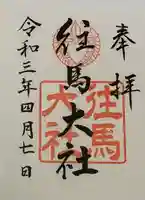 奉拝
往馬大社
往馬
大社
令和三年四月七日